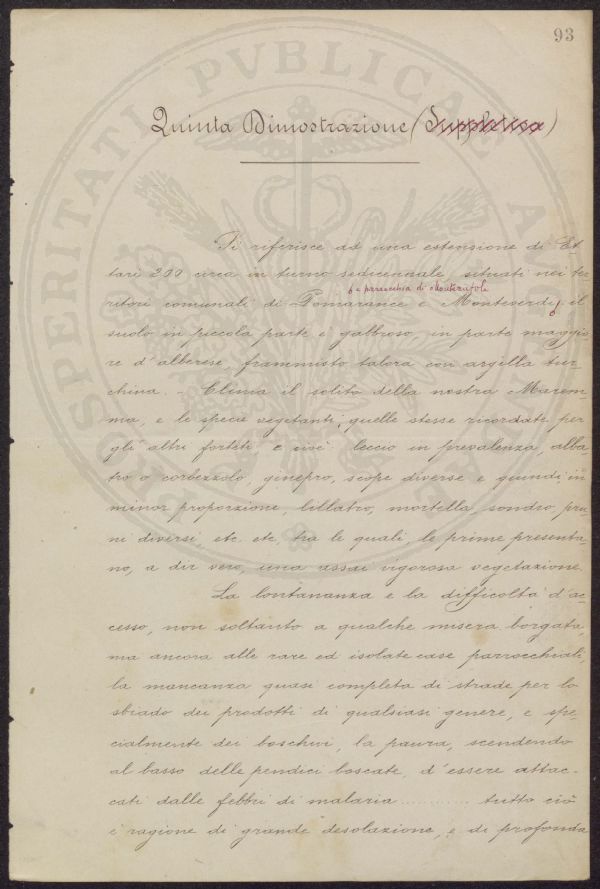 93
Quinta Dimostrazione (Suppletiva)
Si riferisce ad una estensione di Et-
tari 200 circa in turno sedicennale, situati nei te-
e parrocchia di Monterufoli
ritori comunali di Pomarance e Monteverdi, il
suolo in piccola parte è galbroso, in parte maggio-
re d'alberese, frammisto talora con argilla tur-
china. - Clima il solito della nostra Marem-
ma, e le specie vegetanti, quelle stesse ricordate per
gli altri forteti, e cioè leccio in prevalenza, alba-
tro o corbezzolo, ginepro, scope diverse e quindi in
minor proporzione, lillatro, mortella, sondro, pru-
ni diversi, etc. etc, tra le quali, le prime presenta-
no, a dir vero, una assai vigorosa vegetazione.
La lontananza e la difficoltà d'ac-
cesso, non soltanto a qualche misera borgata,
ma ancora alle rare ed isolate case parrocchiali,
la mancanza quasi completa di strade per lo
sbiado dei prodotti di qualsiasi genere, e spe-
cialmente dei boschivi, la paura, scendendo
al basso delle pendici boscate, d'essere attac-
cati dalle febbri di malaria .......... tutto ciò
è ragione di grande desolazione, e di profonda
PROSPERITATI PVBLICAE AVGENDAE